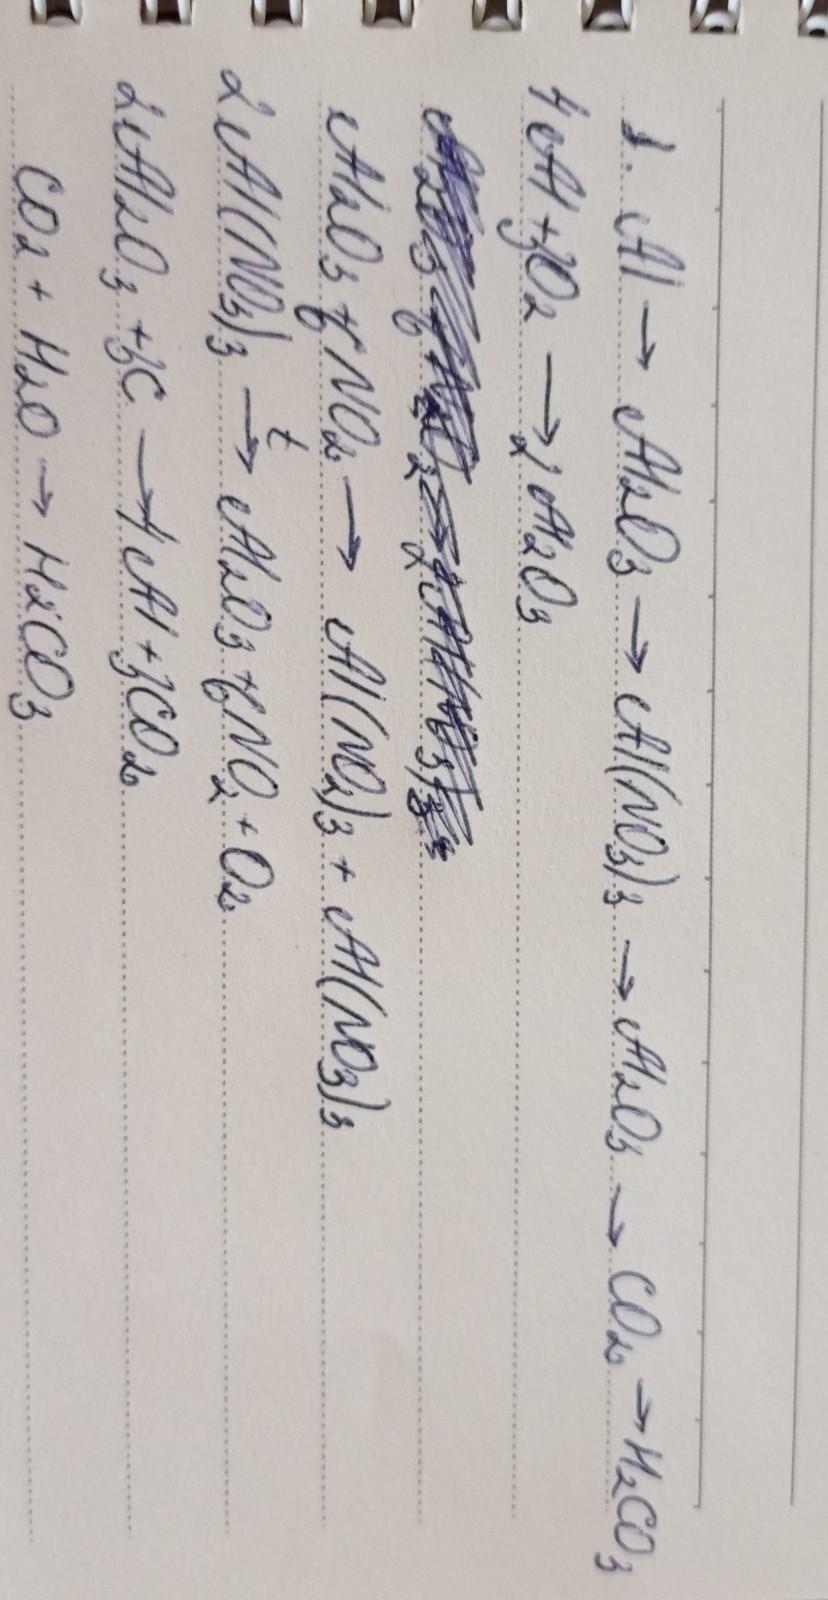 1. Al → Al2O3 → Al(NO3)3 → Al2O3 → CO2 → H2CO3
4Al + 3O2 → 2Al2O3
Al2O3 + 6NO2 → Al(NO2)3 + Al(NO3)3
2Al(NO3)3 t→ Al2O3 + 6NO2 + O2
2Al2O3 + 3C → 4Al + 3CO2
CO2 + H2O → H2CO3